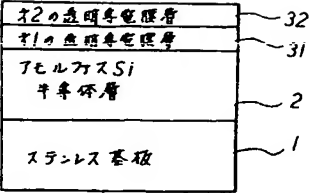 才2の透明導電膜層 32
才1の透明導電膜層 31
アモルファスSi
半導体層 2
ステンレス基板 1